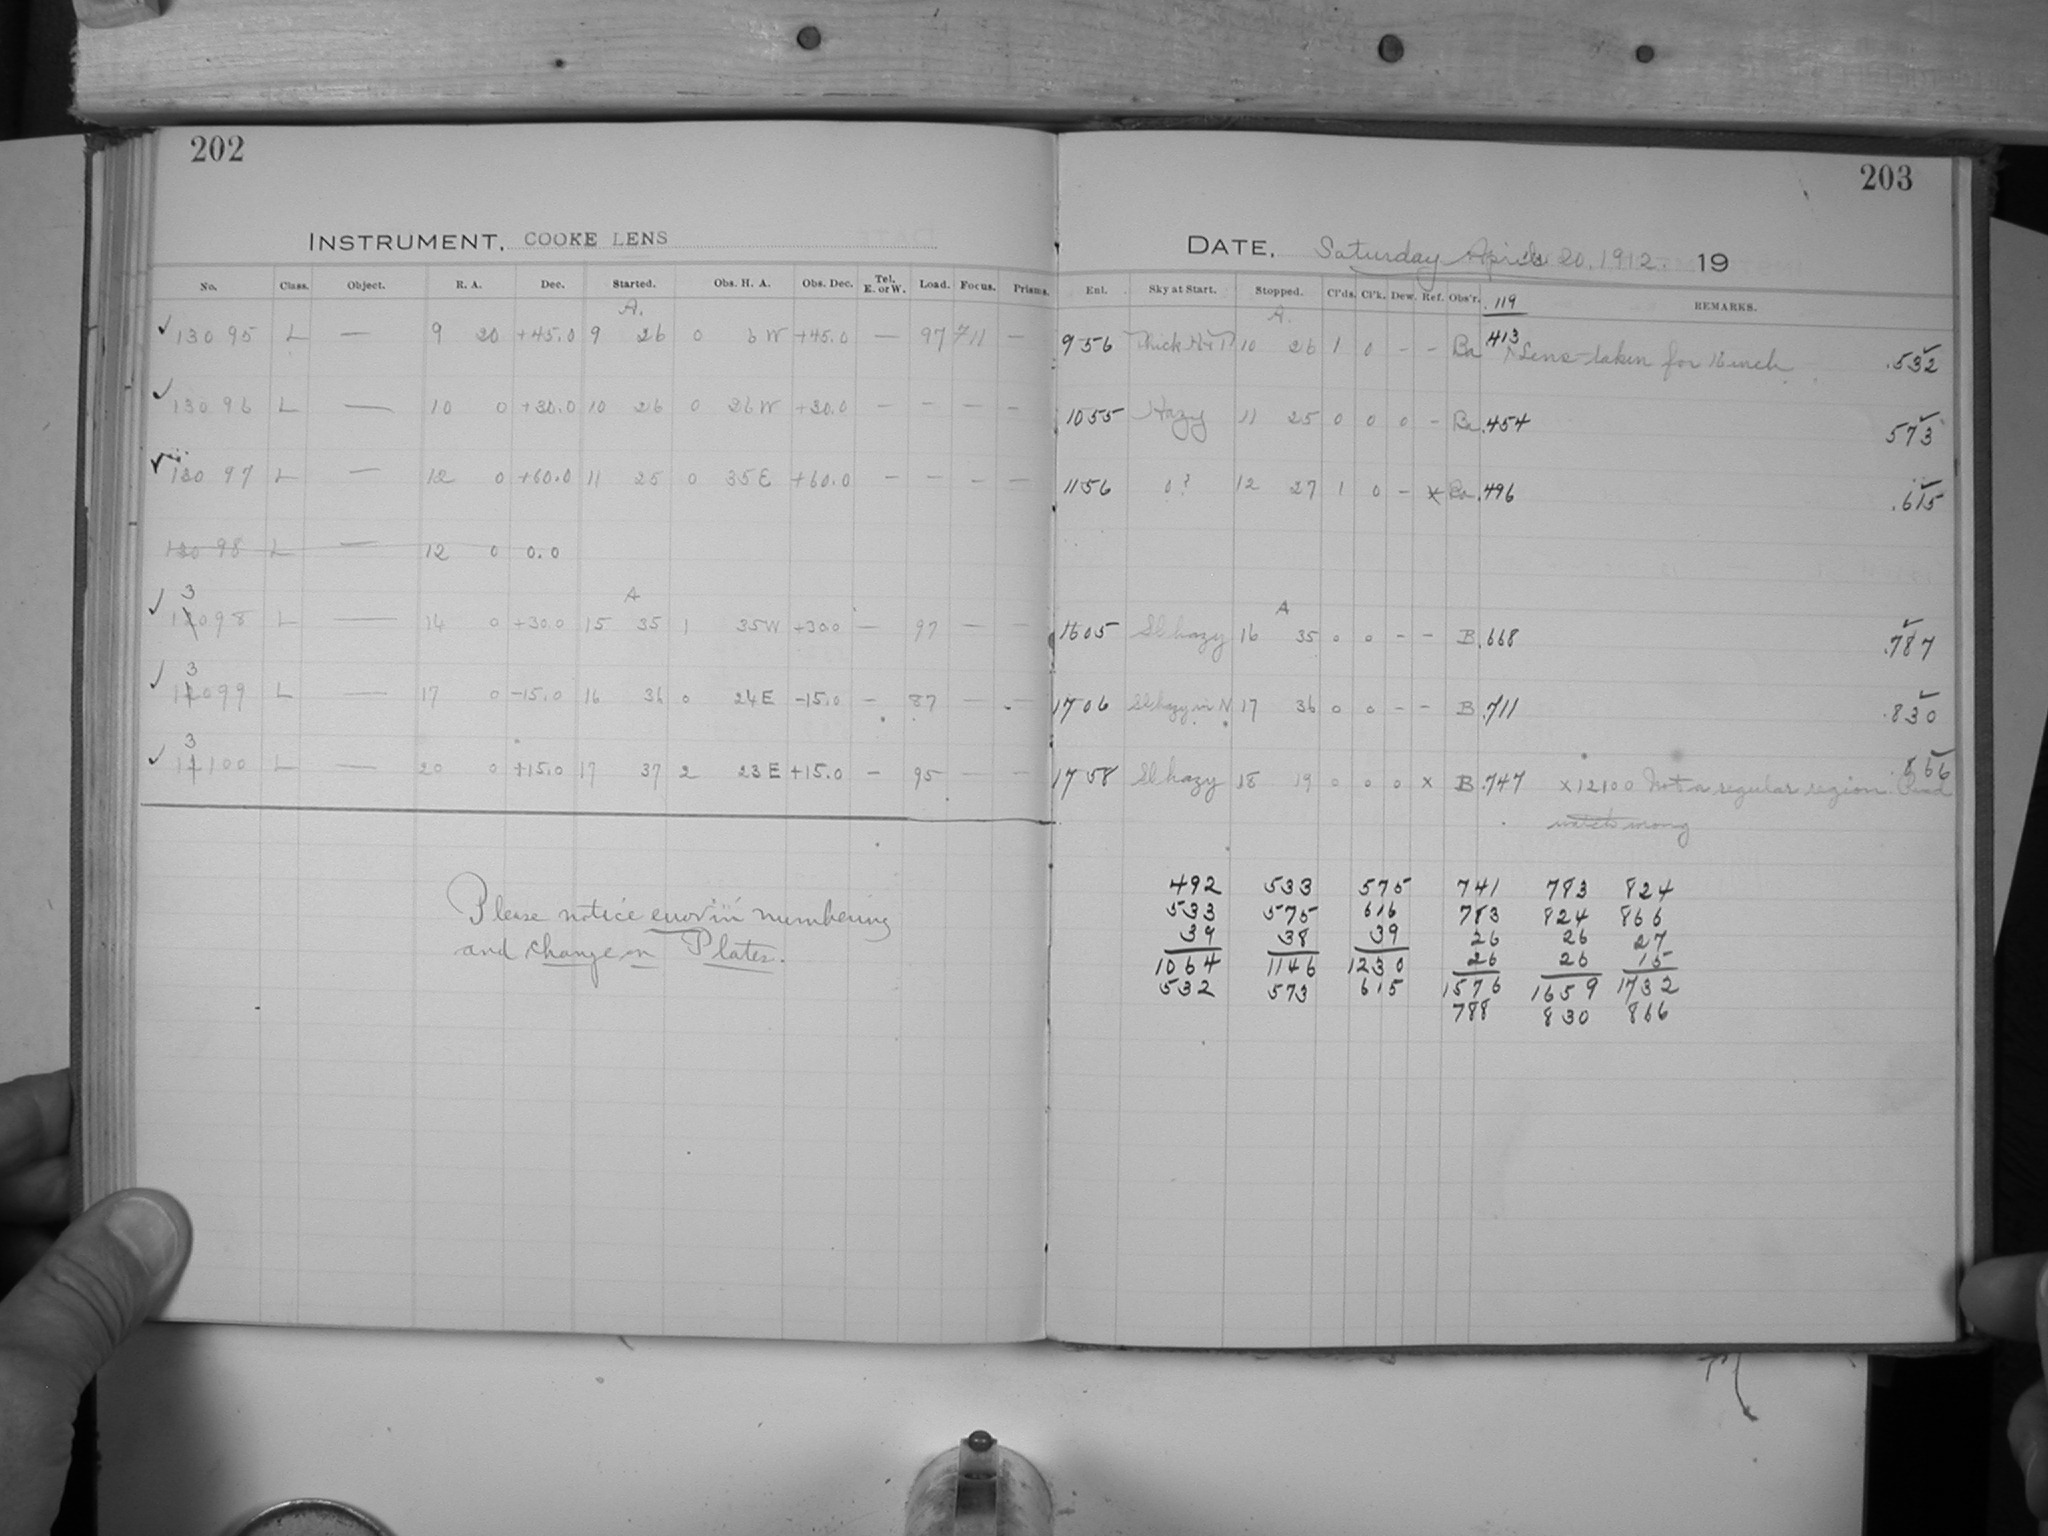 202
INSTRUMENT, COOKE LENS
No. Class. Object. R. A. Dec. Started. Obs. H. A. Obs. Dec. Tel. E. or W. Load. Focus. Prisms.
A.
13095 L — 9 20 +45.0 9 26 0 6 W +45.0 — 97 711 —
13096 L — 10 0 +30.0 10 26 0 26 W +30.0 — — — —
13097 L — 12 0 +60.0 11 25 0 35 E +60.0 — — — —
13098 L — 12 0 0.0
3 A
12098 L — 14 0 +30.0 15 35 1 35 W +30.0 — 97 — —
3
12099 L — 17 0 -15.0 16 36 0 24 E -15.0 — 87 — —
3
12100 L — 20 0 +15.0 17 37 2 23 E +15.0 — 95 — —
Please notice error in numbering
and change on Plates.
203
DATE, Saturday April 20, 1912. 19
Enl. Sky at Start. Stopped. Cl'ds. Cl'k. Dew. Ref. Obs'r. 119 REMARKS.
A.
956 Thick 10 26 1 0 - - Ba .413 Lens taken for 16 inch .532
1055 Hazy 11 25 0 0 0 - Ba .454 573
1156 0? 12 27 1 0 - x Ba .496 .615
A
1605 Sl hazy 16 35 0 0 - - B .668 .787
1706 Sl hazy in N 17 36 0 0 - - B .711 .830
1758 Sl hazy 18 19 0 0 0 x B .747 x 12100 Not a regular region. .866
watch wrong
492 533 575 741 783 824
533 575 616 783 824 866
39 38 39 26 26 27
1064 1146 1230 26 26 15
532 573 615 1576 1659 1732
788 830 866